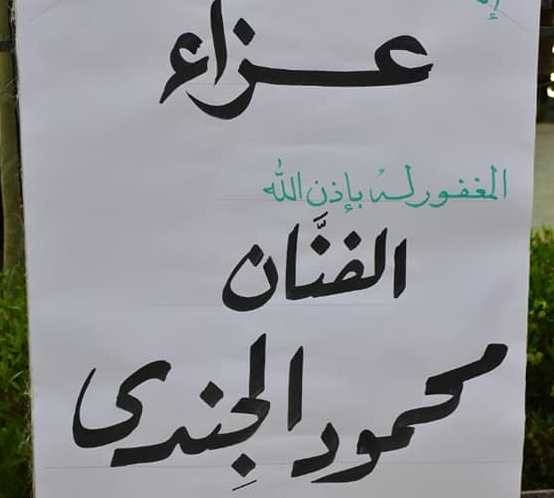 عزاء
المغفور له بإذن الله
الفنَّان
محمود الجِندى